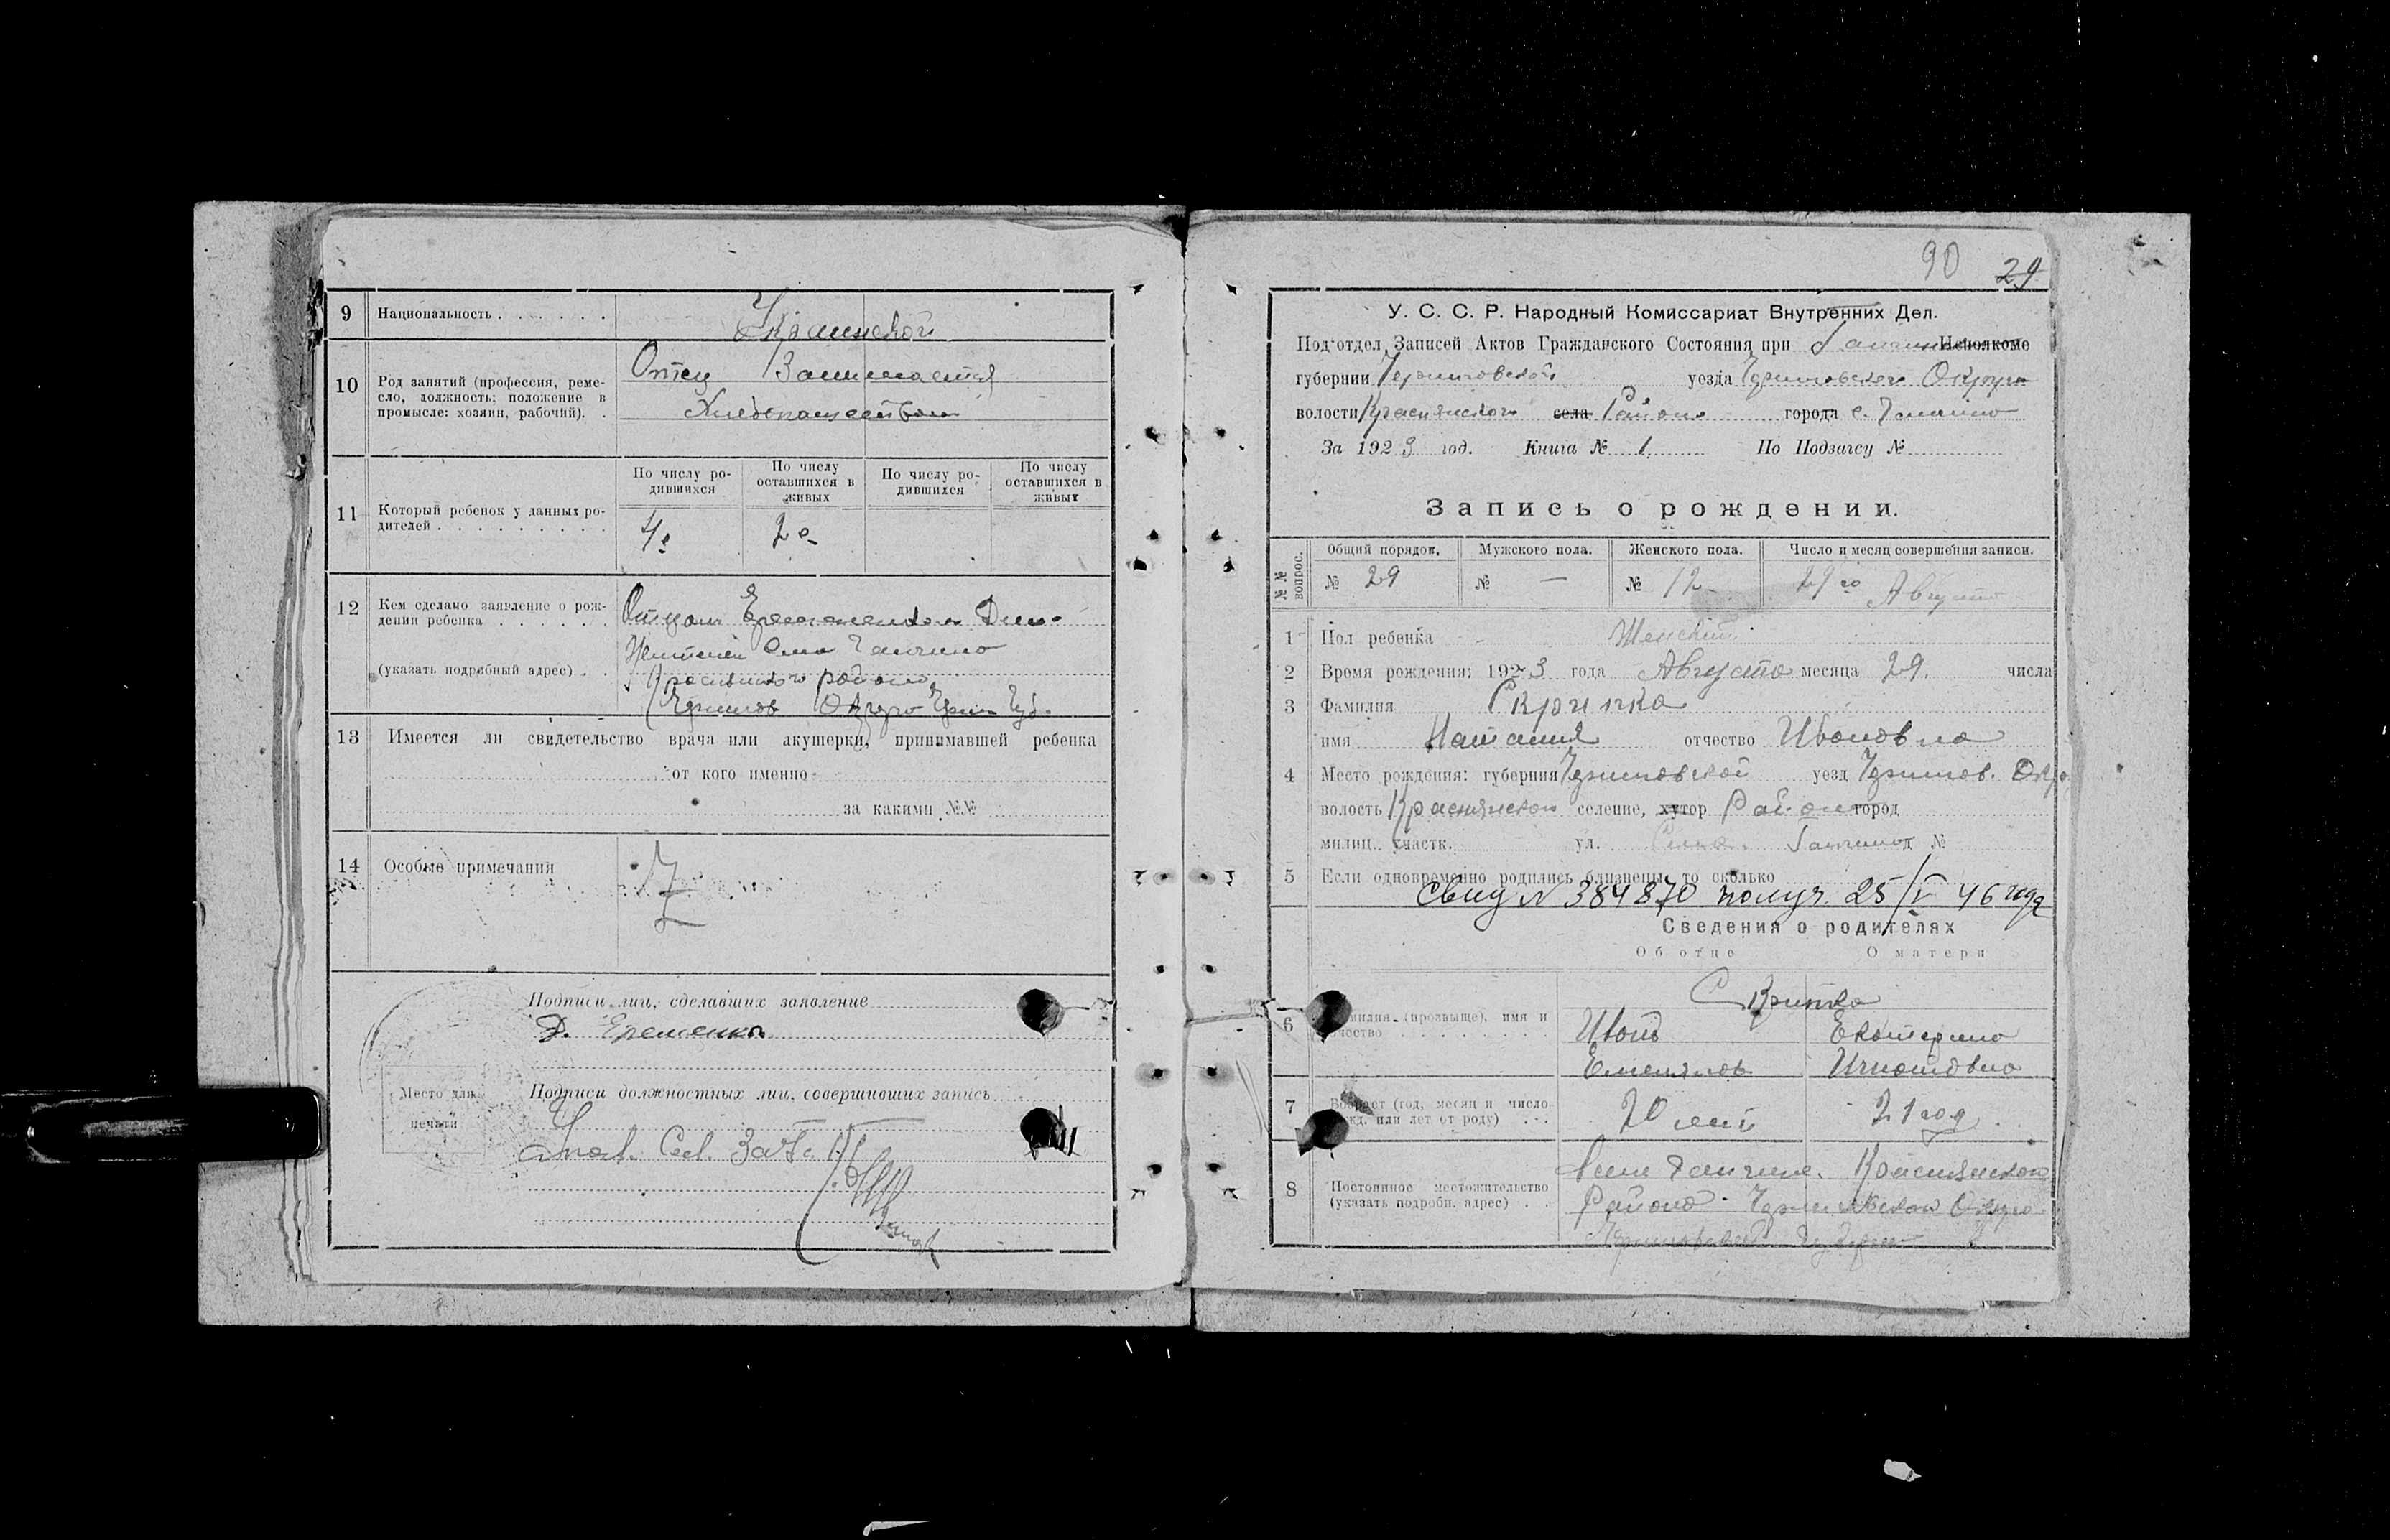 9 Национальность . . . . . . Украинской
10 Род занятий (профессия, реме-
сло, должность; положение в
промысле: хозяин, рабочий). .
Отец Занимается
Хлебопашеством
11 Который ребенок у данных ро-
дителей . . . . . . . . .
По числу ро-
дившихся
По числу
оставшихся в
живых
По числу ро-
дившихся
По числу
оставшихся в
живых
4й 2й
12 Кем сделано заявление о рож-
дении ребенка . . . . . .
(указать подробный адрес) . .
Отцом
Жителей Села
района
Округа
13 Имеется ли свидетельство врача или акушерки, принимавшей ребенка
от кого именно
за какими №№
14 Особые примечания
Подписи лиц, сделавших заявление
Д. Еременко
Место для
печати
Подписи должностных лиц, совершивших запись
90 29
У. С. С. Р. Народный Комиссариат Внутренних Дел.
Под'отдел Записей Актов Гражданского Состояния при Исполкоме
губернии Черниговской уезда Черниговского Округа
волости Краснянского села Района города с.
За 1923 год. Книга № 1 По Подзагсу №
Запись о рождении.
№№ вопрос.
Общий порядов. Мужского пола. Женского пола. Число и месяц совершения записи.
№ 29 № — № 12 29 го Августа
1 Пол ребенка Женский
2 Время рождения: 1923 года Августа месяца 29 числа
3 Фамилия Скрипка
имя Наталия отчество Ивановна
4 Место рождения: губерния Черниговской уезд Чернигов. Окр.
волость Краснянской селение, хутор Район город
милиц. участк. ул. Села №
5 Если одновременно родились близнецы, то сколько
Свид N 384870 получ. 25/V 46 года
Сведения о родителях
Об отце О матери
Скрипка
6 Фамилия (прозвище), имя и
отчество . . . . . . . .
Иван Екатерина
Емельянов Игнатовна
7 Возраст (год, месяц и число
рожд. или лет от роду) . . .
20 лет 21 год
8 Постоянное местожительство
(указать подробн. адрес) . .
Краснянского
Района Черниговского Округа
Черниговской губернии